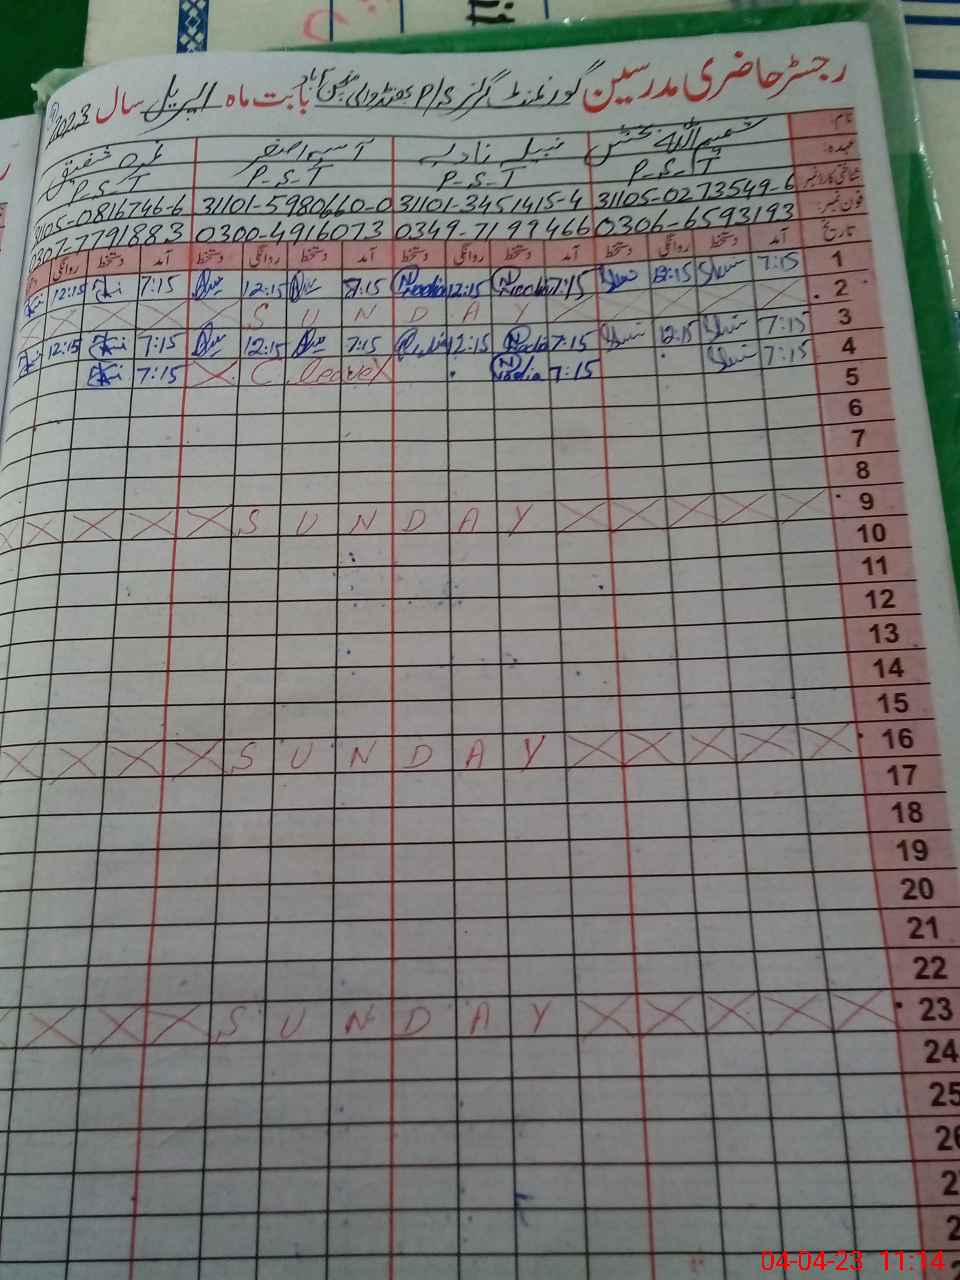 رجسٹر حاضری مدرسین گورنمنٹ گرلز P/S بابت ماہ اپریل سال 2023
نام
عہدہ P-S-T P-S-T P-S-T P-S-T
شناختی کارڈ نمبر 31105-0273549-6 31101-3451415-4 31101-5980660-0 31105-0816746-6
فون نمبر 0306-6593193 0349-7199466 0300-4916073 0307-7791883
تاریخ آمد دستخط روانگی دستخط آمد دستخط روانگی دستخط آمد دستخط روانگی دستخط آمد دستخط روانگی
1 7:15 12:15 7:15 Nadia 12:15 Nadia 7:15 12:15 7:15 12:15
2 S U N D A Y
3 7:15 12:15 7:15 Nadia 12:15 7:15 12:15 7:15 12:15
4 7:15 7:15 Nadia C leave 7:15
5
6
7
8
9 S U N D A Y
10
11
12
13
14
15
16 S U N D A Y
17
18
19
20
21
22
23 S U N D A Y
24
25
04-04-23 11:14